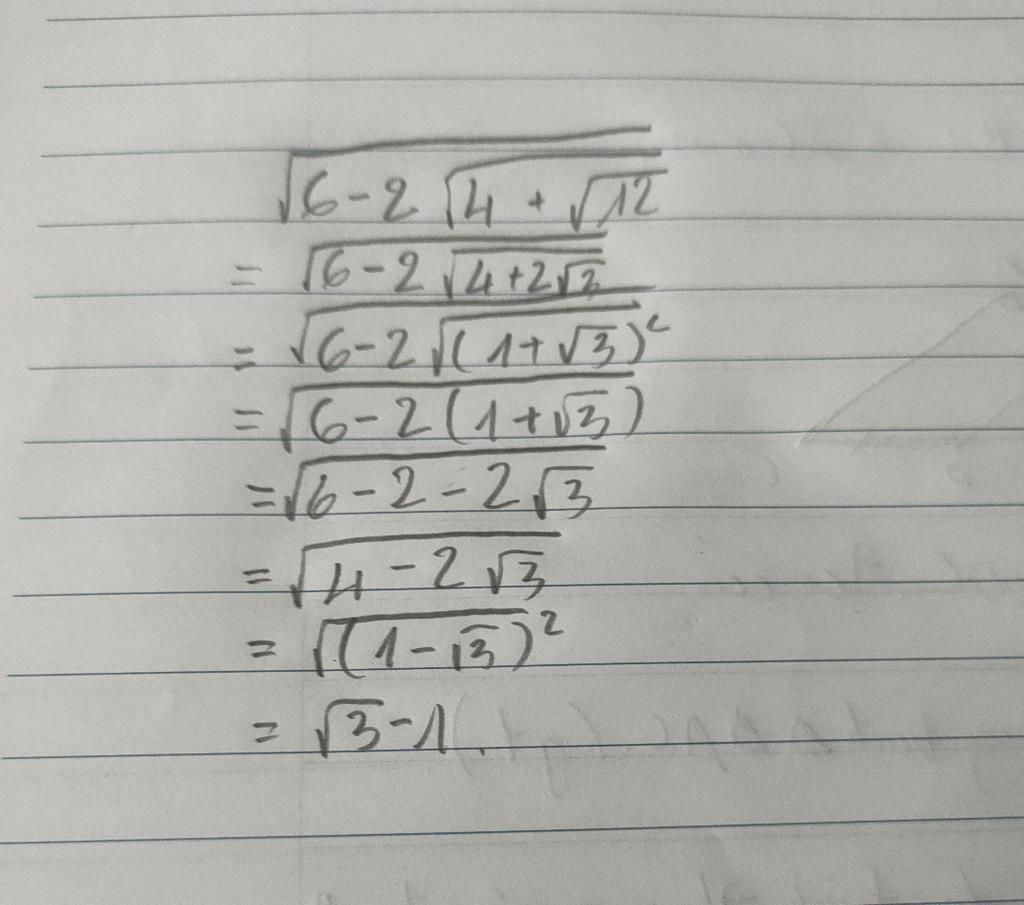 √(6-2√(4+√12))
= √(6-2√(4+2√3))
= √(6-2√((1+√3)²))
= √(6-2(1+√3))
= √(6-2-2√3)
= √(4-2√3)
= √((1-√3)²)
= √3-1.